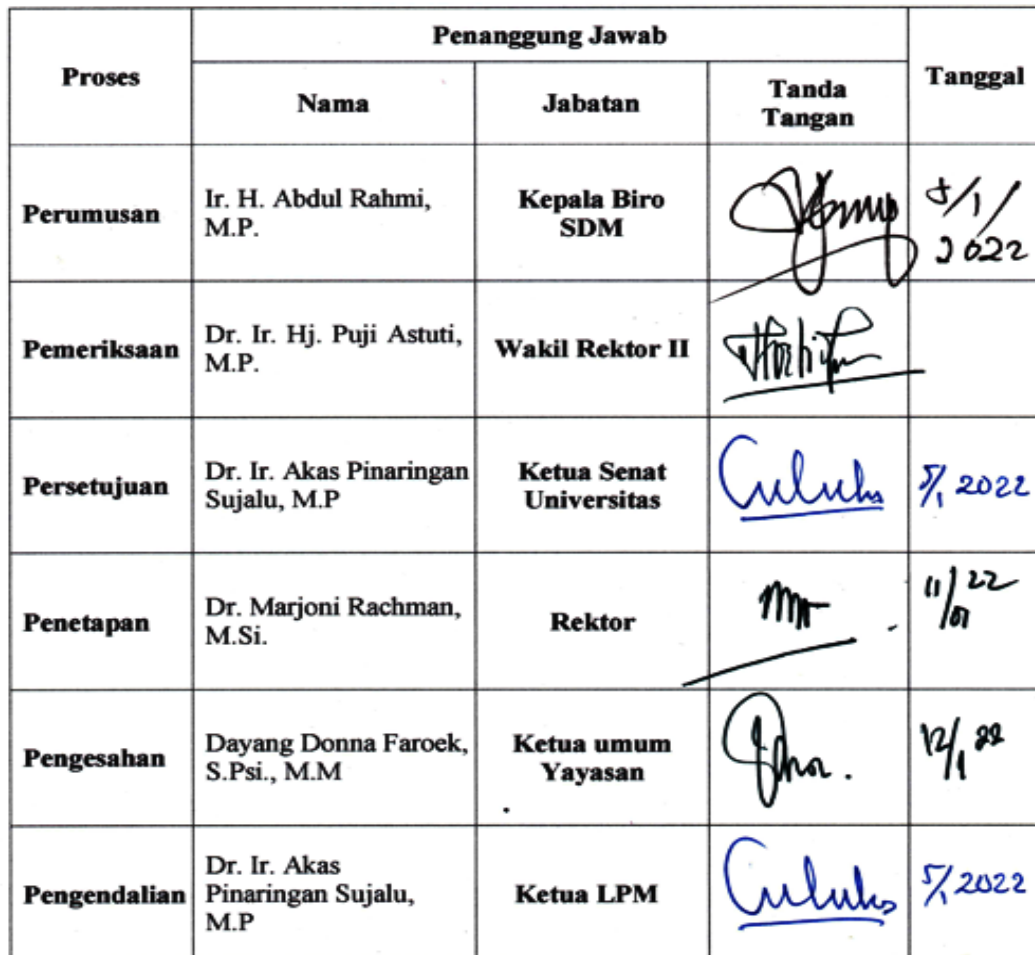 Proses
Penanggung Jawab
Tanggal
Nama
Jabatan
Tanda
Tangan
Perumusan
Ir. H. Abdul Rahmi,
M.P.
Kepala Biro
SDM
5/1/
2022
Pemeriksaan
Dr. Ir. Hj. Puji Astuti,
M.P.
Wakil Rektor II
Persetujuan
Dr. Ir. Akas Pinaringan
Sujalu, M.P
Ketua Senat
Universitas
5/1 2022
Penetapan
Dr. Marjoni Rachman,
M.Si.
Rektor
11/01 22
Pengesahan
Dayang Donna Faroek,
S.Psi., M.M
Ketua umum
Yayasan
12/1 22
Pengendalian
Dr. Ir. Akas
Pinaringan Sujalu,
M.P
Ketua LPM
5/1 2022